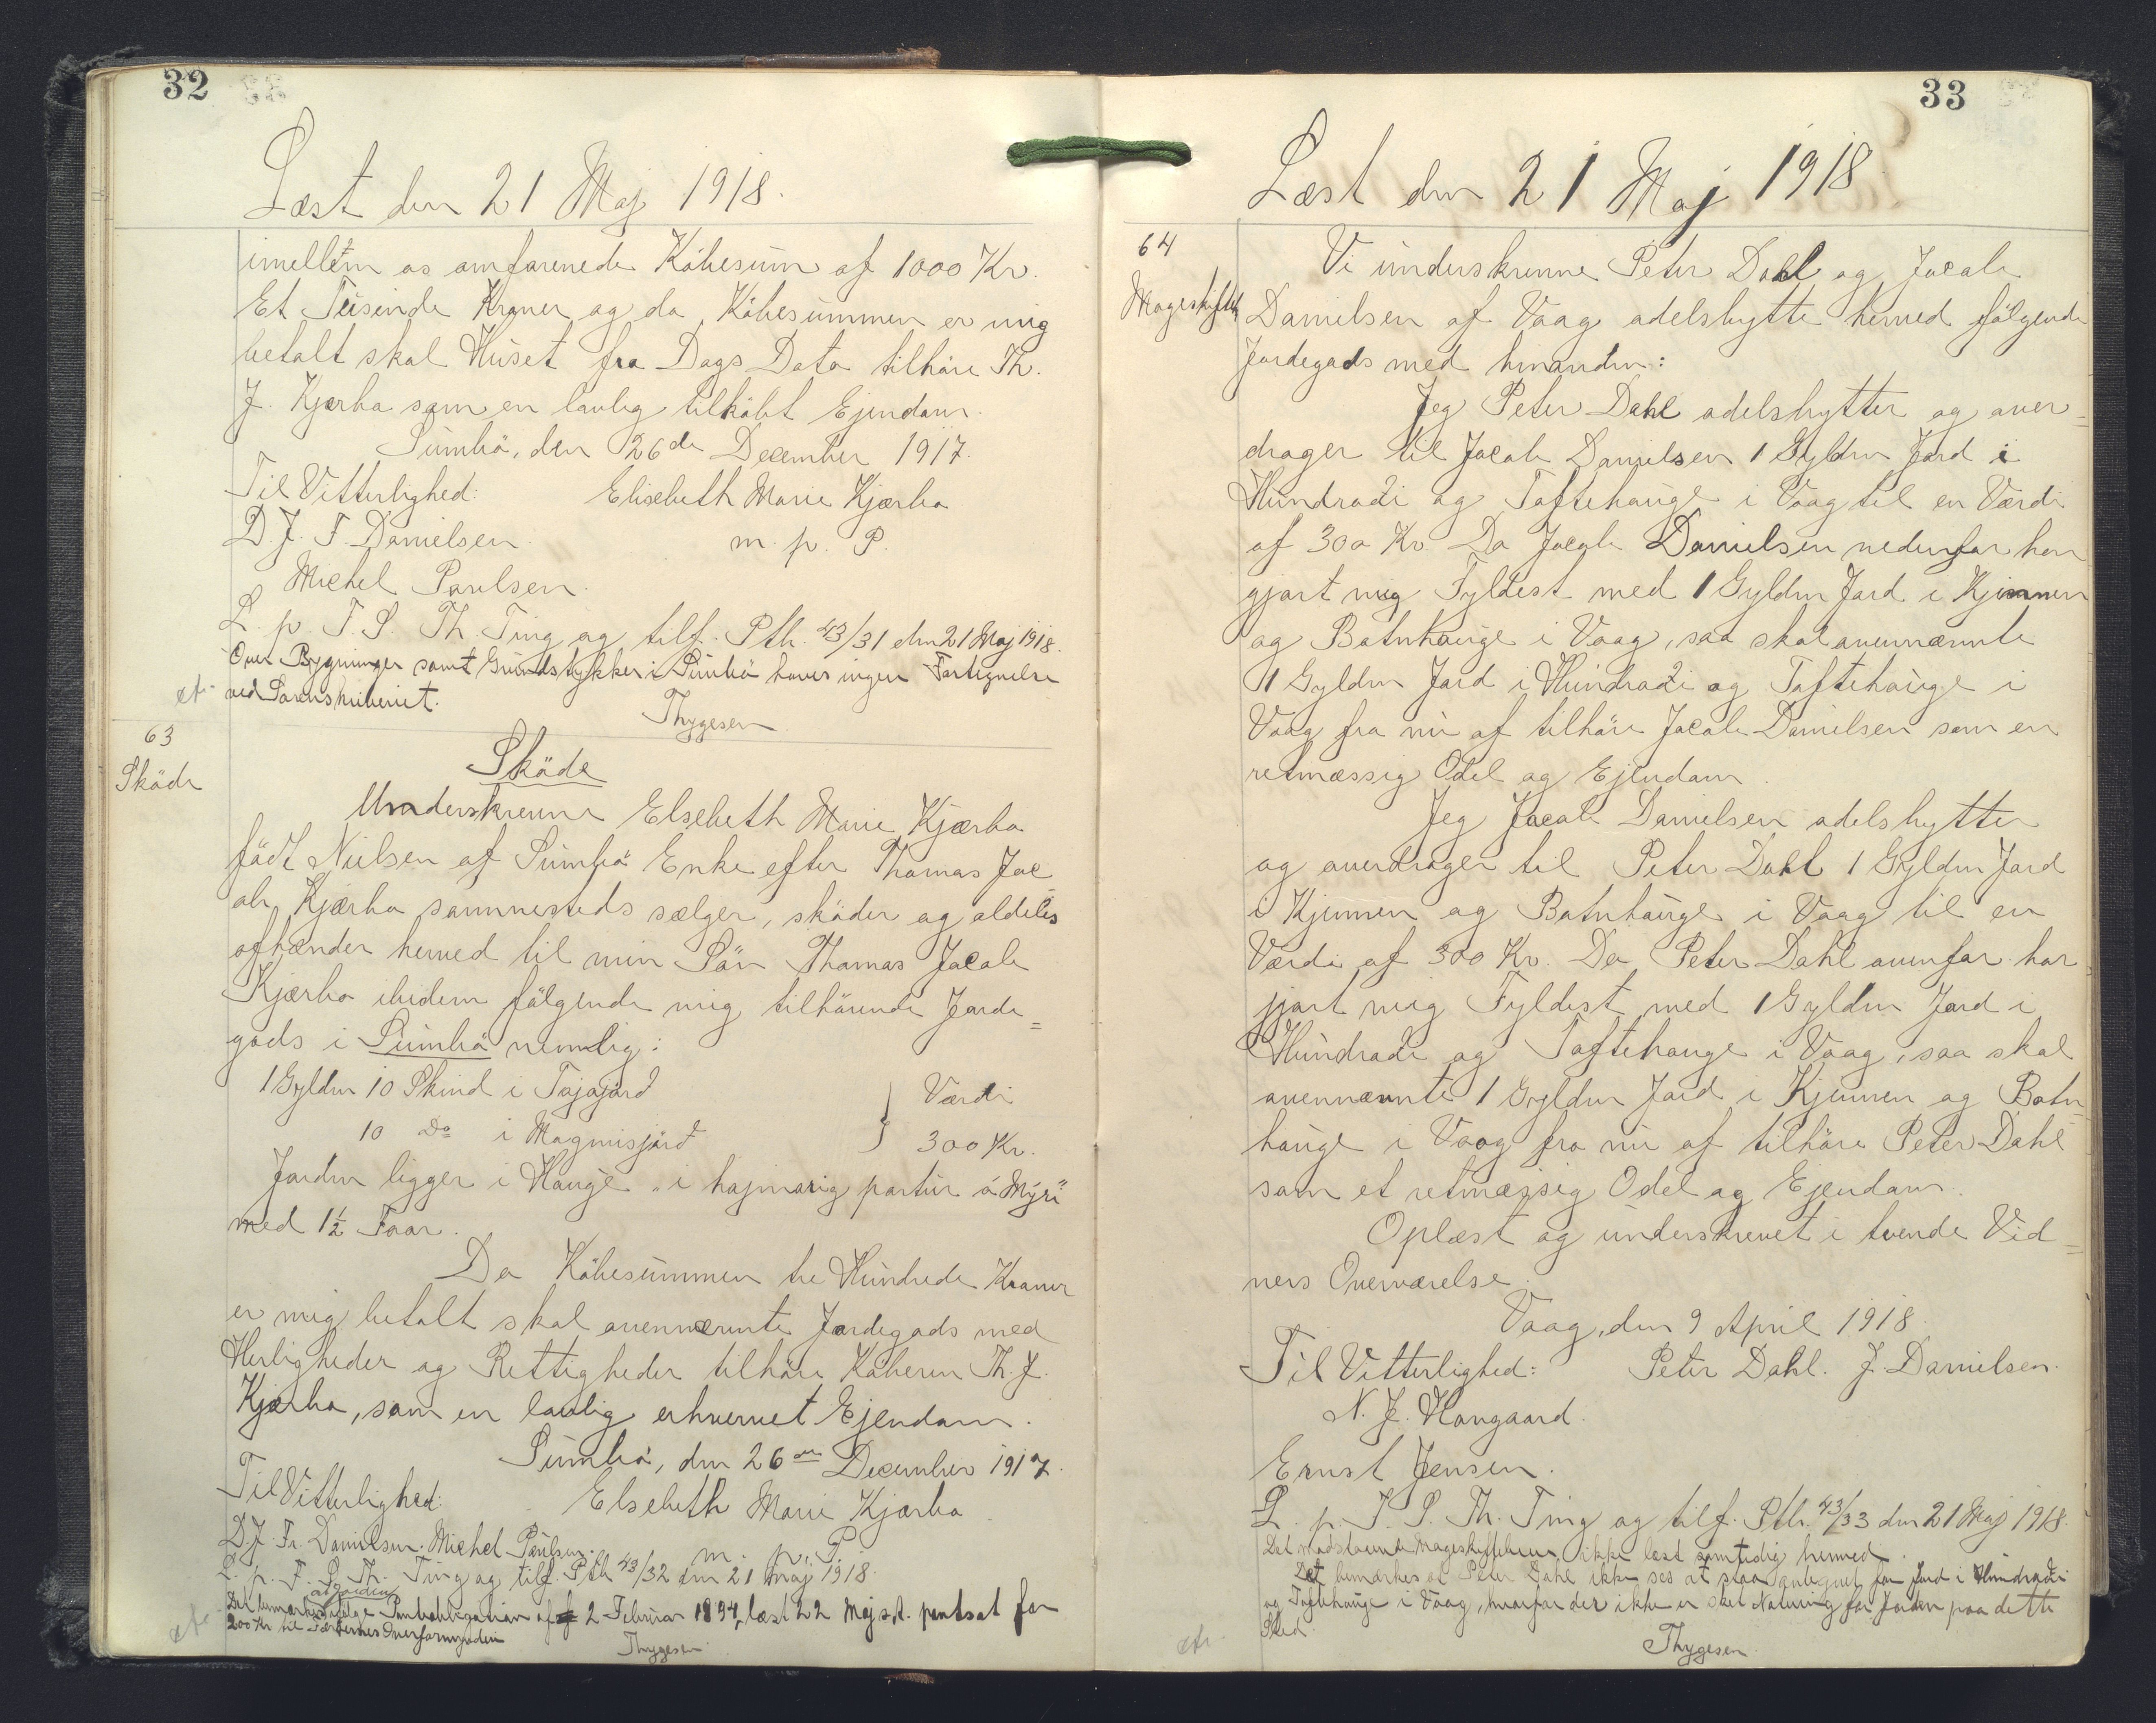 32
Læst den 21 Maj 1918.
imellem os omforenede Köbesum af 1000 Kr.
Et Tusinde Kroner og da Köbesummen er mig
betalt skal Huset fra Dags Dato tilhöre Th.
J. Kjærbo som en lovlig tilköbt Ejendom.
Sumbö, den 26de December 1917.
Til Vitterlighed: Elisebeth Marie Kjærbo
D. J. F. Danielsen m. p. P.
Michel Poulsen.
L. p. F. S. Th. Ting og tilf. Ptb. 43/31 den 21 Maj 1918.
Over Bygninger samt Grundstykker i Sumbö haves ingen Fortegnelse
ved Sorenskriveriet.
Thygesen
63
Sköde
Sköde
Underskrevne Elsebeth Marie Kjærbo
född Nielsen af Sumbö Enke efter Thomas Jac
ob Kjærbo sammesteds sælger, sköder og aldeles
afhænder herved til min Sön Thomas Jacob
Kjærbo ibidem fölgende mig tilhörende Jorde=
gods i Sumbö nemlig:
1 Gylden 10 Skind i Tojajörd } Værdi
10 Do i Magnusjörd 300 Kr.
Jorden ligger i Hauge "i hajmarig partur á Mýri"
med 1½ Faar.
Da Köbesummen tre Hundrede Kroner
er mig betalt skal ovennævnte Jordegods med
Herligheder og Rettigheder tilhöre Köberen Th. J.
Kjærbo, som en lovlig erhvervet Ejendom.
Sumbö, den 26de December 1917.
Til Vitterlighed: Elsebeth Marie Kjærbo
D. J. Fr. Danielsen. Michel Poulsen. m. p. P.
L. p. F. S. Th. Ting og tilf. Ptb 43/32 den 21 Maj 1918.
Det bemærkes at Jorden ifölge Pantobligation af 2 Februar 1894, læst 22 Maj s.A. pantsat for
200 Kr til Færöernes Overformynderi
Thygesen
33
Læst den 21 Maj 1918
64
Mageskifte
Vi underskrevne Peter Dahl og Jacob
Danielsen af Vaag odelsbytte herved fölgende
Jordegods med hinanden:
Jeg Peter Dahl odelsbytter og over=
drager til Jacob Danielsen 1 Gylden Jord i
Hundradi og Toftehauge i Vaag til en Værdi
af 300 Kr. Da Jacob Danielsen nedenfor har
gjort mig Fyldest med 1 Gylden Jord i Kjennen
og Botnhauge i Vaag, saa skal ovennævnte
1 Gylden Jord i Hundradi og Toftehauge i
Vaag fra nu af tilhöre Jacob Danielsen som en
retmæssig Odel og Ejendom.
Jeg Jacob Danielsen odelsbytter
og overdrager til Peter Dahl 1 Gylden Jord
i Kjennen og Botnhauge i Vaag til en
Værdi af 300 Kr. Da Peter Dahl ovenfor har
gjort mig Fyldest med 1 Gylden Jord i
Hundradi og Toftehauge i Vaag, saa skal
ovennævnte 1 Gylden Jord i Kjennen og Botn
hauge i Vaag fra nu af tilhöre Peter Dahl
som et retmæssig Odel og Ejendom.
Oplæst og underskrevet i tvende Vid=
ners Overværelse.
Vaag, den 9 April 1918.
Til Vitterlighed: Peter Dahl. J. Danielsen.
N. J. Hovgaard.
Ernst Jensen.
L. p. F. S. Th. Ting og tilf. Ptb. 43/33 den 21 Maj 1918.
Det modstaaende Mageskiftebrev ikke læst samtidig hermed.
Det bemærkes at Peter Dahl ikke ses at staa antegnet for Jord i Hundradi
og Toftehauge i Vaag, hvorfor der ikke er sket Notering for Jorden paa dette
Sted
Thygesen